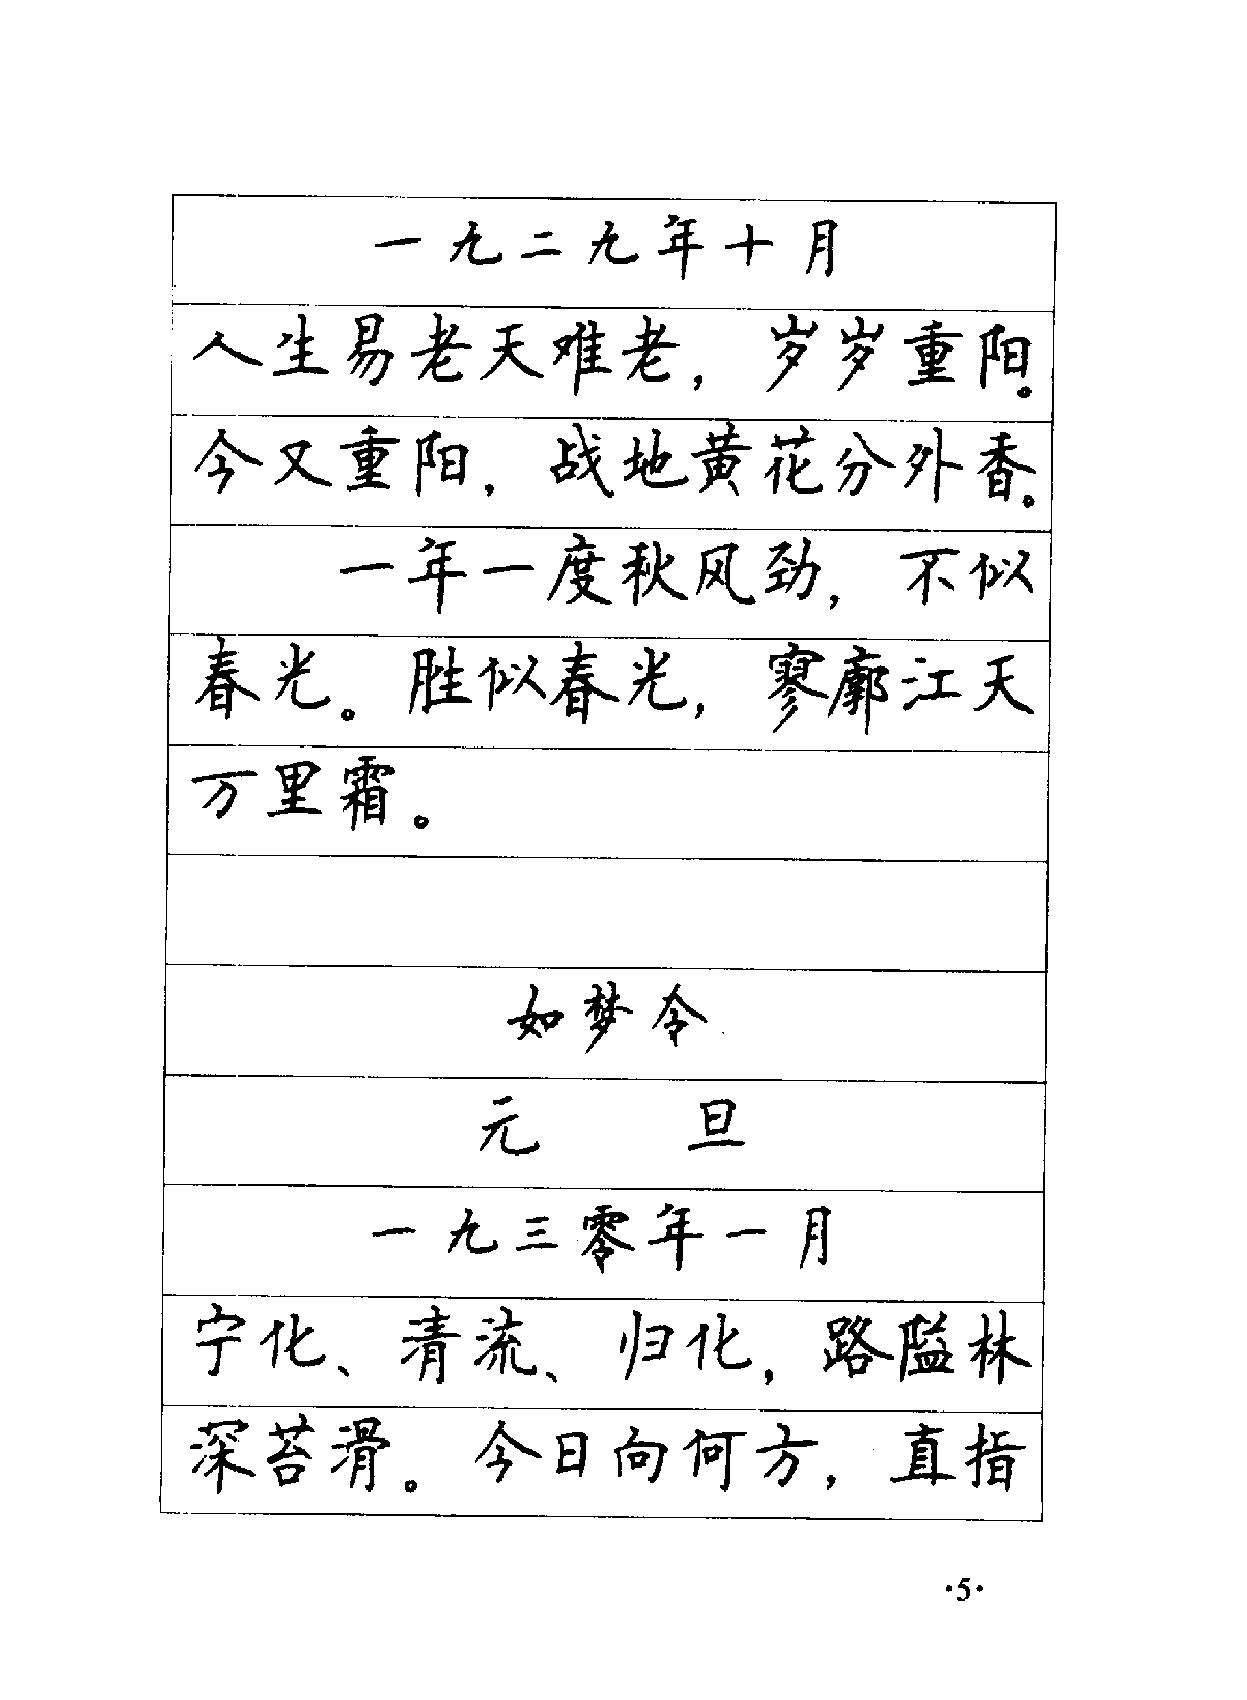 一九二九年十月
人生易老天难老，岁岁重阳。
今又重阳，战地黄花分外香。
一年一度秋风劲，不似
春光。胜似春光，寥廓江天
万里霜。
如梦令
元 旦
一九三零年一月
宁化、清流、归化，路隘林
深苔滑。今日向何方，直指
·5·